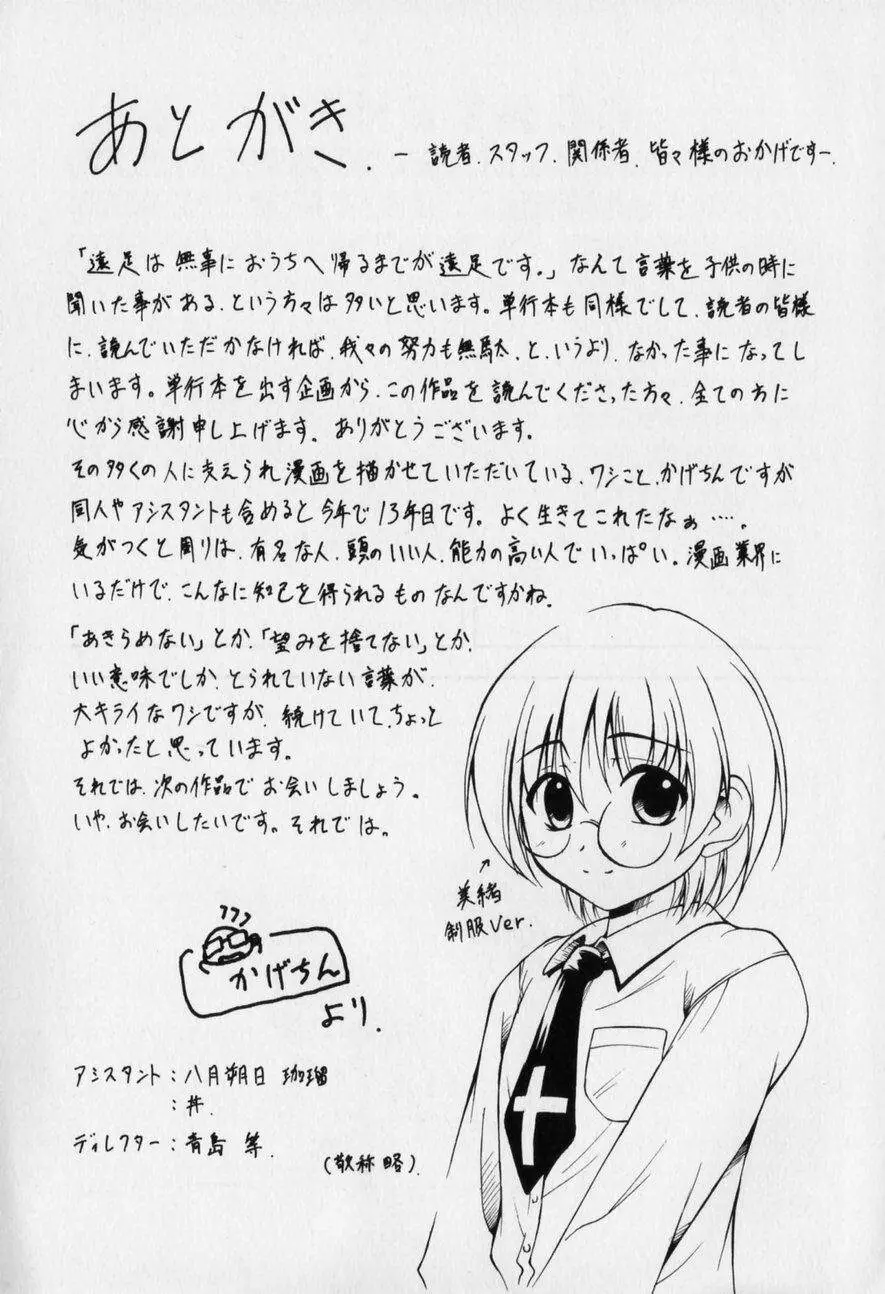 あとがき. ー読者、スタッフ、関係者、皆々様のおかげですー.
「遠足は無事におうちへ帰るまでが遠足です。」なんて言葉を子供の時に
聞いた事がある、という方々は多いと思います。単行本も同様でして、読者の皆様
に、読んでいただかなければ、我々の努力も無駄、と、いうより、なかった事になってし
まいます。単行本を出す企画から、この作品を読んでくださった方々、全ての方に
心から感謝申し上げます。ありがとうございます。
その多くの人に支えられ漫画を描かせていただいている、ワシこと、かげちんですが
同人やアシスタントも含めると今年で13年目です。よく生きてこれたなぁ…。
気がつくと周りは、有名な人、頭のいい人、能力の高い人でいっぱい。漫画業界に
いるだけで、こんなに知己を得られるものなんですかね。
「あきらめない」とか、「望みを捨てない」とか、
いい意味でしか、とられていない言葉が、
大キライなワシですが、続けていて、ちょっと
よかったと思っています。
それでは、次の作品でお会いしましょう。
いや、お会いしたいです。それでは。
美緒
制服Ver.
かげちん
より.
アシスタント：八月朔日 珈瑠
：丼.
ディレクター：青島 等.
(敬称略).